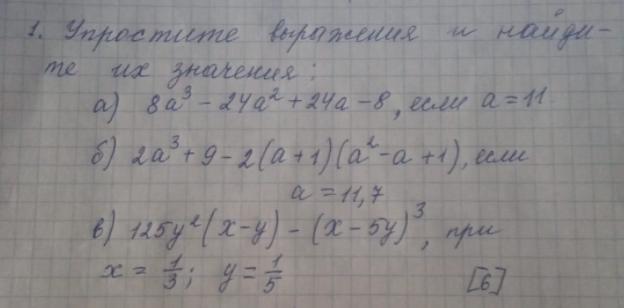 1. Упростите выражения и найди-
те их значения:
а) 8a³ - 24a² + 24a - 8, если a = 11
б) 2a³ + 9 - 2(a + 1)(a² - a + 1), если
a = 11,7
в) 125y²(x - y) - (x - 5y)³, при
x = 1/3; y = 1/5 [6]